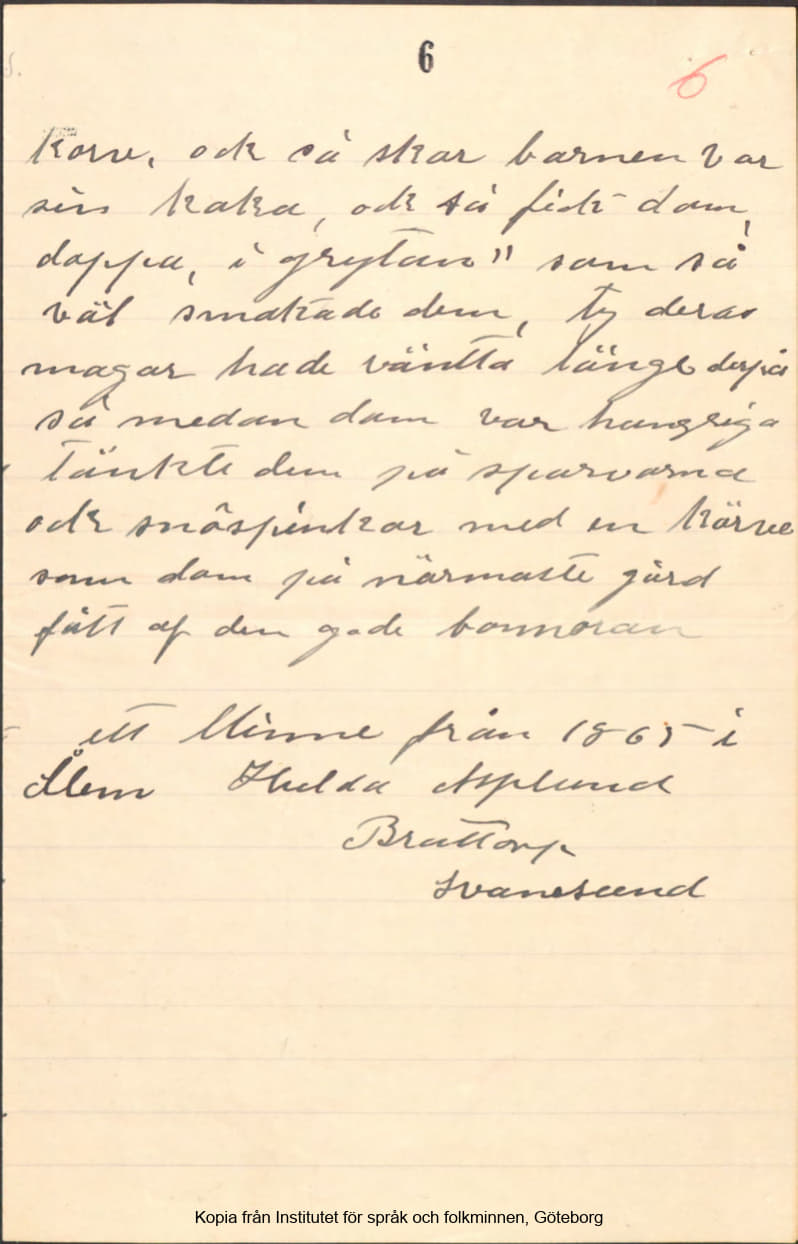 6
6
korv, ock så skar barnen var
sin kaka, ock så fick dom,
doppa, i grytan" som så
väl smakade dem, ty deras
magar hade väntta länge derpå
så medan dom var hungriga
tänkte dem på sparvarna
ock snöspinkar med en kärve
som dom på närmaste gård
fått af den gode bonmoran
ett Minne från 1865 i
Ålem Hulda Asplund
Brattorp
Svanesund
Kopia från Institutet för språk och folkminnen, Göteborg